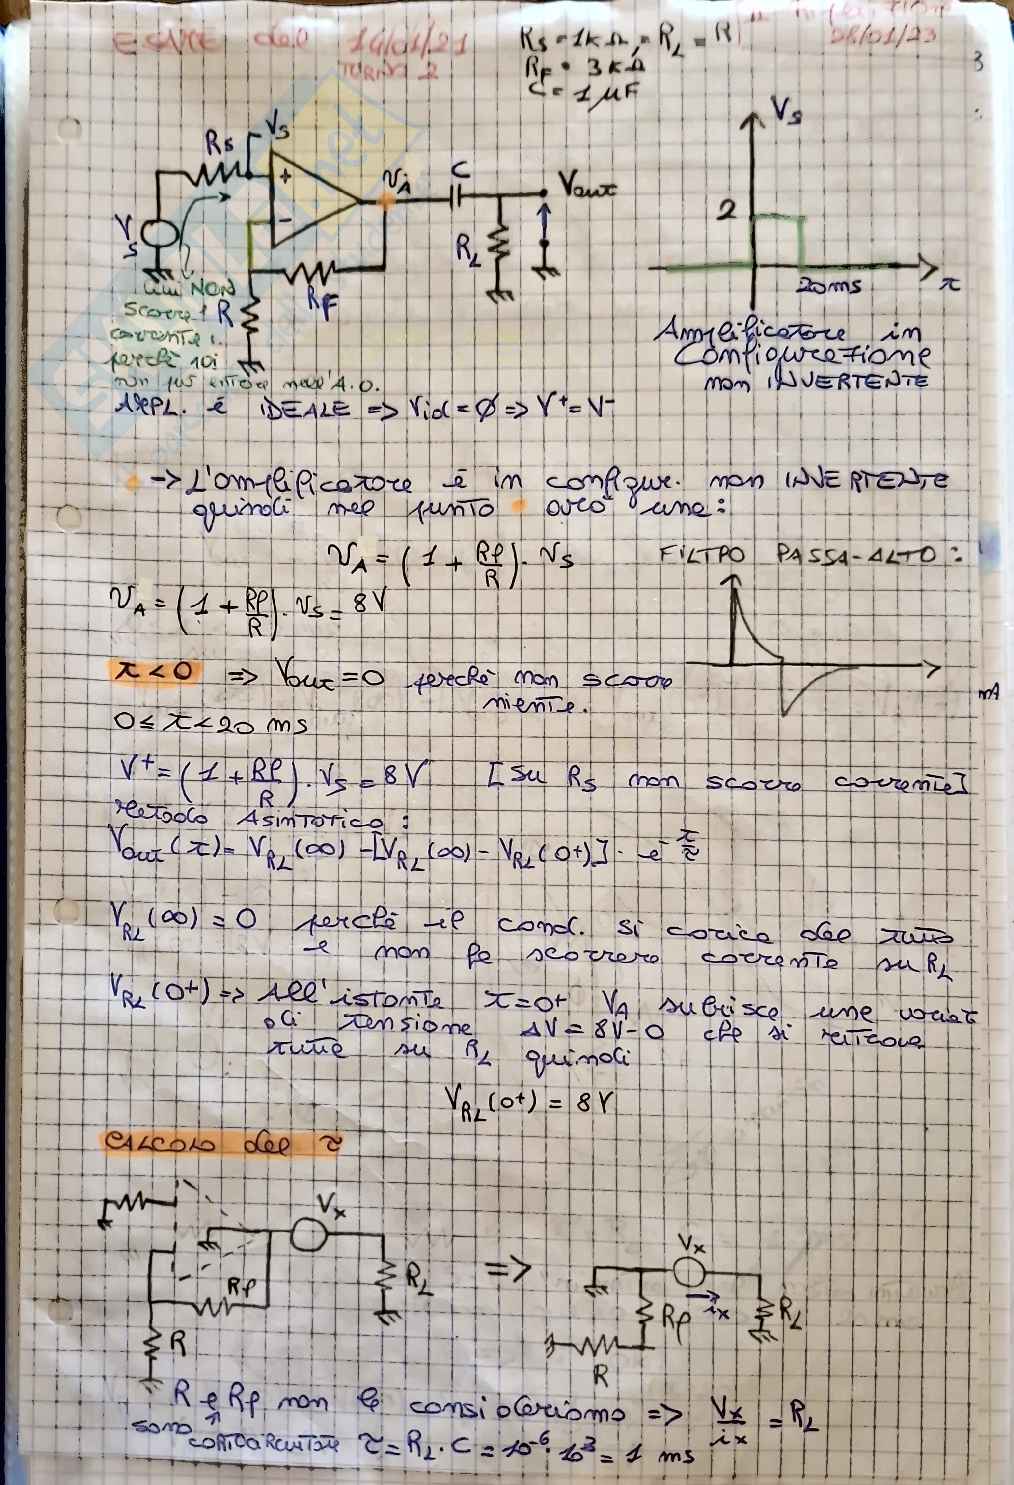 ESAME del 14/01/21
TURNO 2
28/01/23
RS = 1kΩ, = RL = R
RF = 3kΩ
C = 1μF
3
RS
VS
VA
C
Vout
VS
+
-
RL
RF
R
VS
2
20ms
t
qui NON
scorre
corrente i.
perchè
nell'A.O.
Amplificatore in
Configurazione
non INVERTENTE
AMPL. è IDEALE => Vid = Ø => V+ = V-
-> L'amplificatore è in configur. non INVERTENTE
quindi nel punto avrò una:
VA = (1 + Rf/R) · VS
FILTRO PASSA-ALTO:
VA = (1 + Rf/R) · VS = 8V
t < 0 => Vout = 0 perchè non scorre
niente.
mA
0 ≤ t < 20 ms
V+ = (1 + Rf/R) · VS = 8V [Su RS non scorre corrente]
Metodo Asintotico:
Vout(t) = VRL(∞) - [VRL(∞) - VRL(0+)] · e^-t/τ
VRL(∞) = 0 perchè il cond. si carica del tutto
e non fa scorrere corrente su RL
VRL(0+) => All'istante t=0+ VA subisce una variaz
di tensione ΔV = 8V-0 che si ritrova
tutta su RL quindi
VRL(0+) = 8V
CALCOLO del τ
Vx
RL
Rf
R
=>
Vx
ix
Rf
RL
R
R e Rf non le consideriamo => Vx/ix = RL
sono cortocircuitate τ = RL · C = 10^-6 · 10^3 = 1 ms